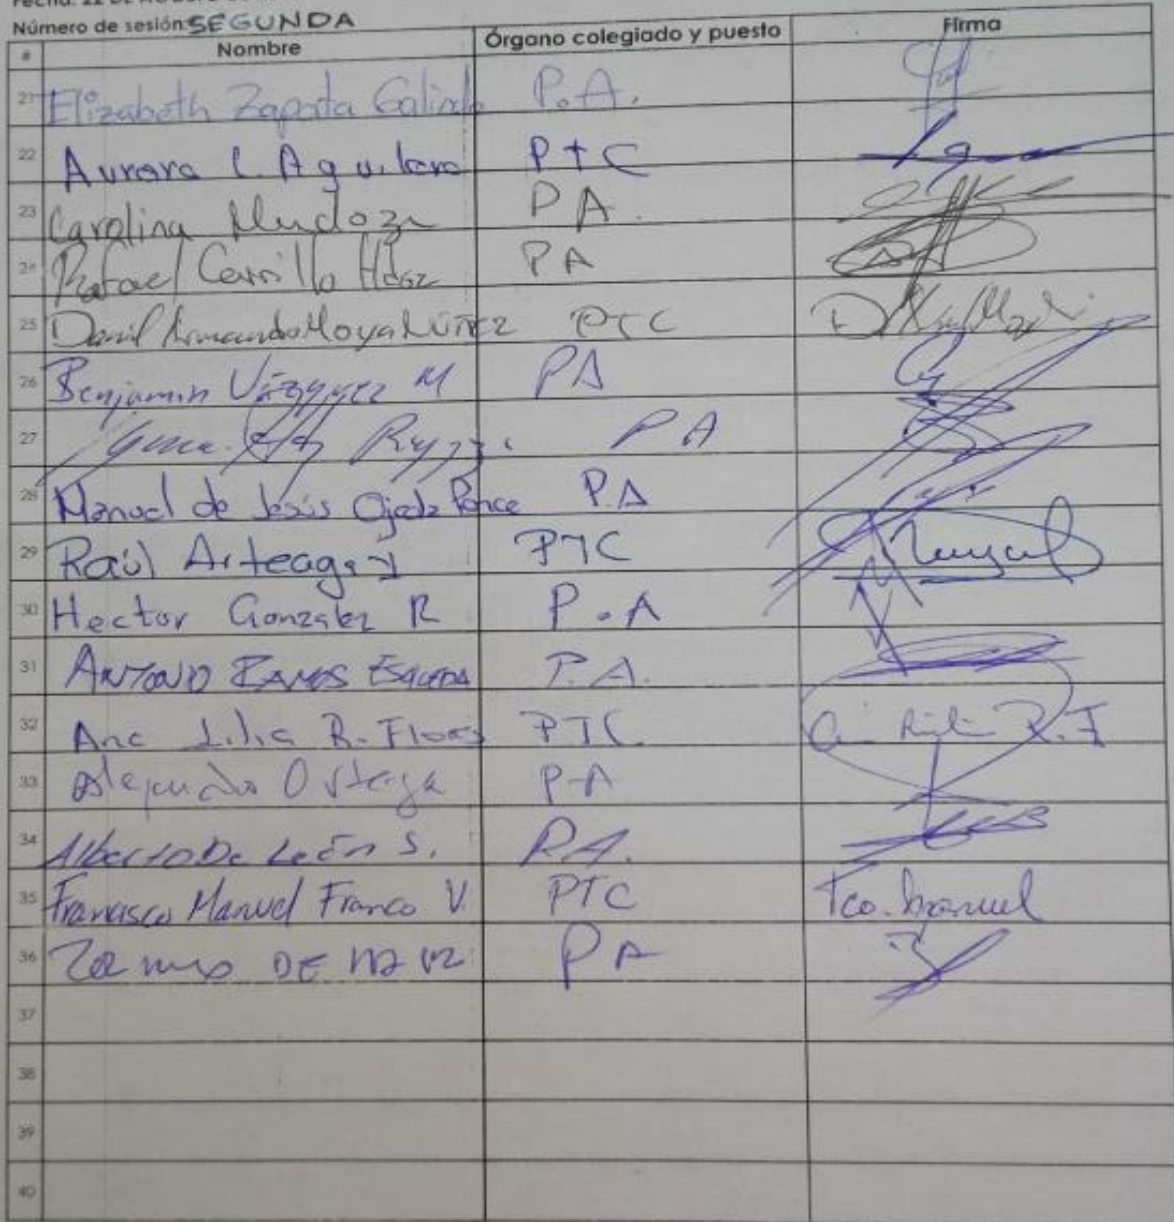 Número de sesión: SEGUNDA
# Nombre Órgano colegiado y puesto Firma
21 Elizabeth Zapata Galindo P.A.
22 Aurora L. Aguilera PTC
23 Carolina Mendoza PA.
24 Rafael Carrillo Hdez PA
25 Daniel Armando Moya NÚÑEZ PTC
26 Benjamin Vázquez M PA
27 PA
28 Manuel de Jesús Ojeda Ponce P.A
29 Raúl Arteaga PTC
30 Hector Gonzalez R P.A
31 ANTONIO RAMOS P.A.
32 Ana Lilia R. Flores PTC R.F
33 Alejandro Ortega P-A
34 Alberto De León S. P.A.
35 Francisco Manuel Franco V. PTC Fco. Manuel
36 DE PA
37
38
39
40